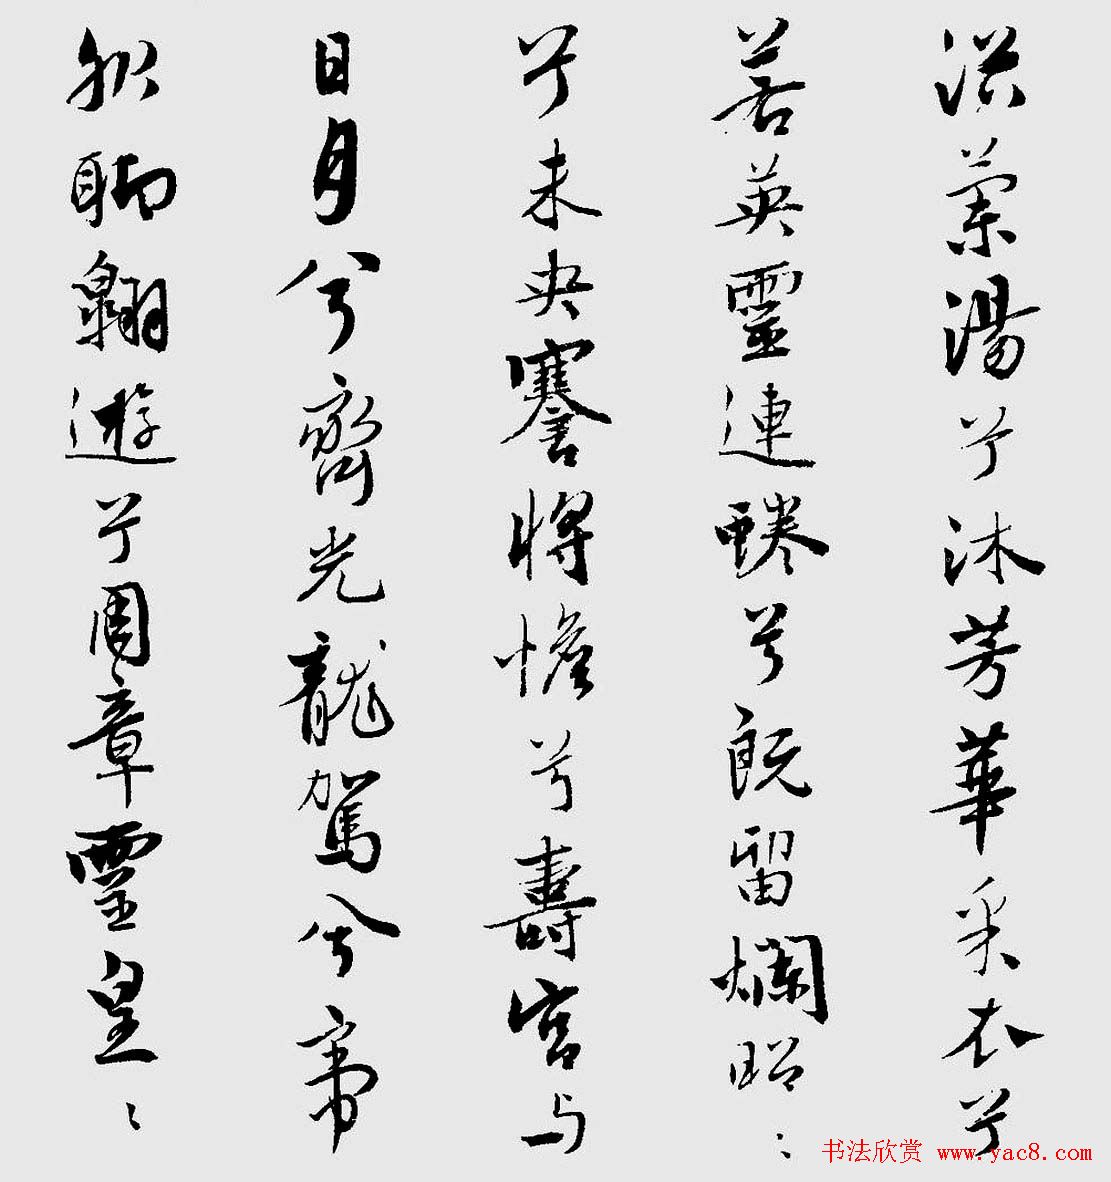 浴蘭湯兮沐芳華采衣兮
若英靈連蜷兮既留爛昭〻
兮未央謇將憺兮壽宮与
日月兮齊光龍駕兮帝
服聊翱遊兮周章靈皇〻
书法欣赏 www.yac8.com